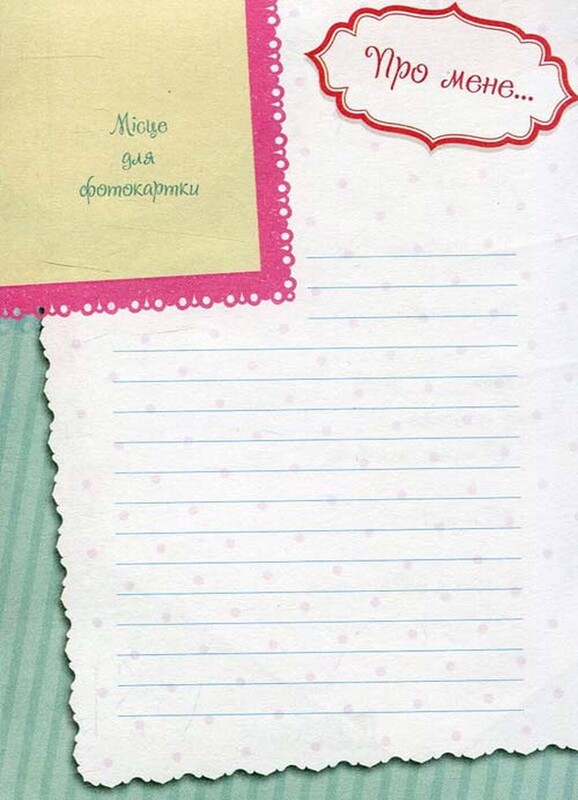 Про мене...
Місце
для
фотокартки